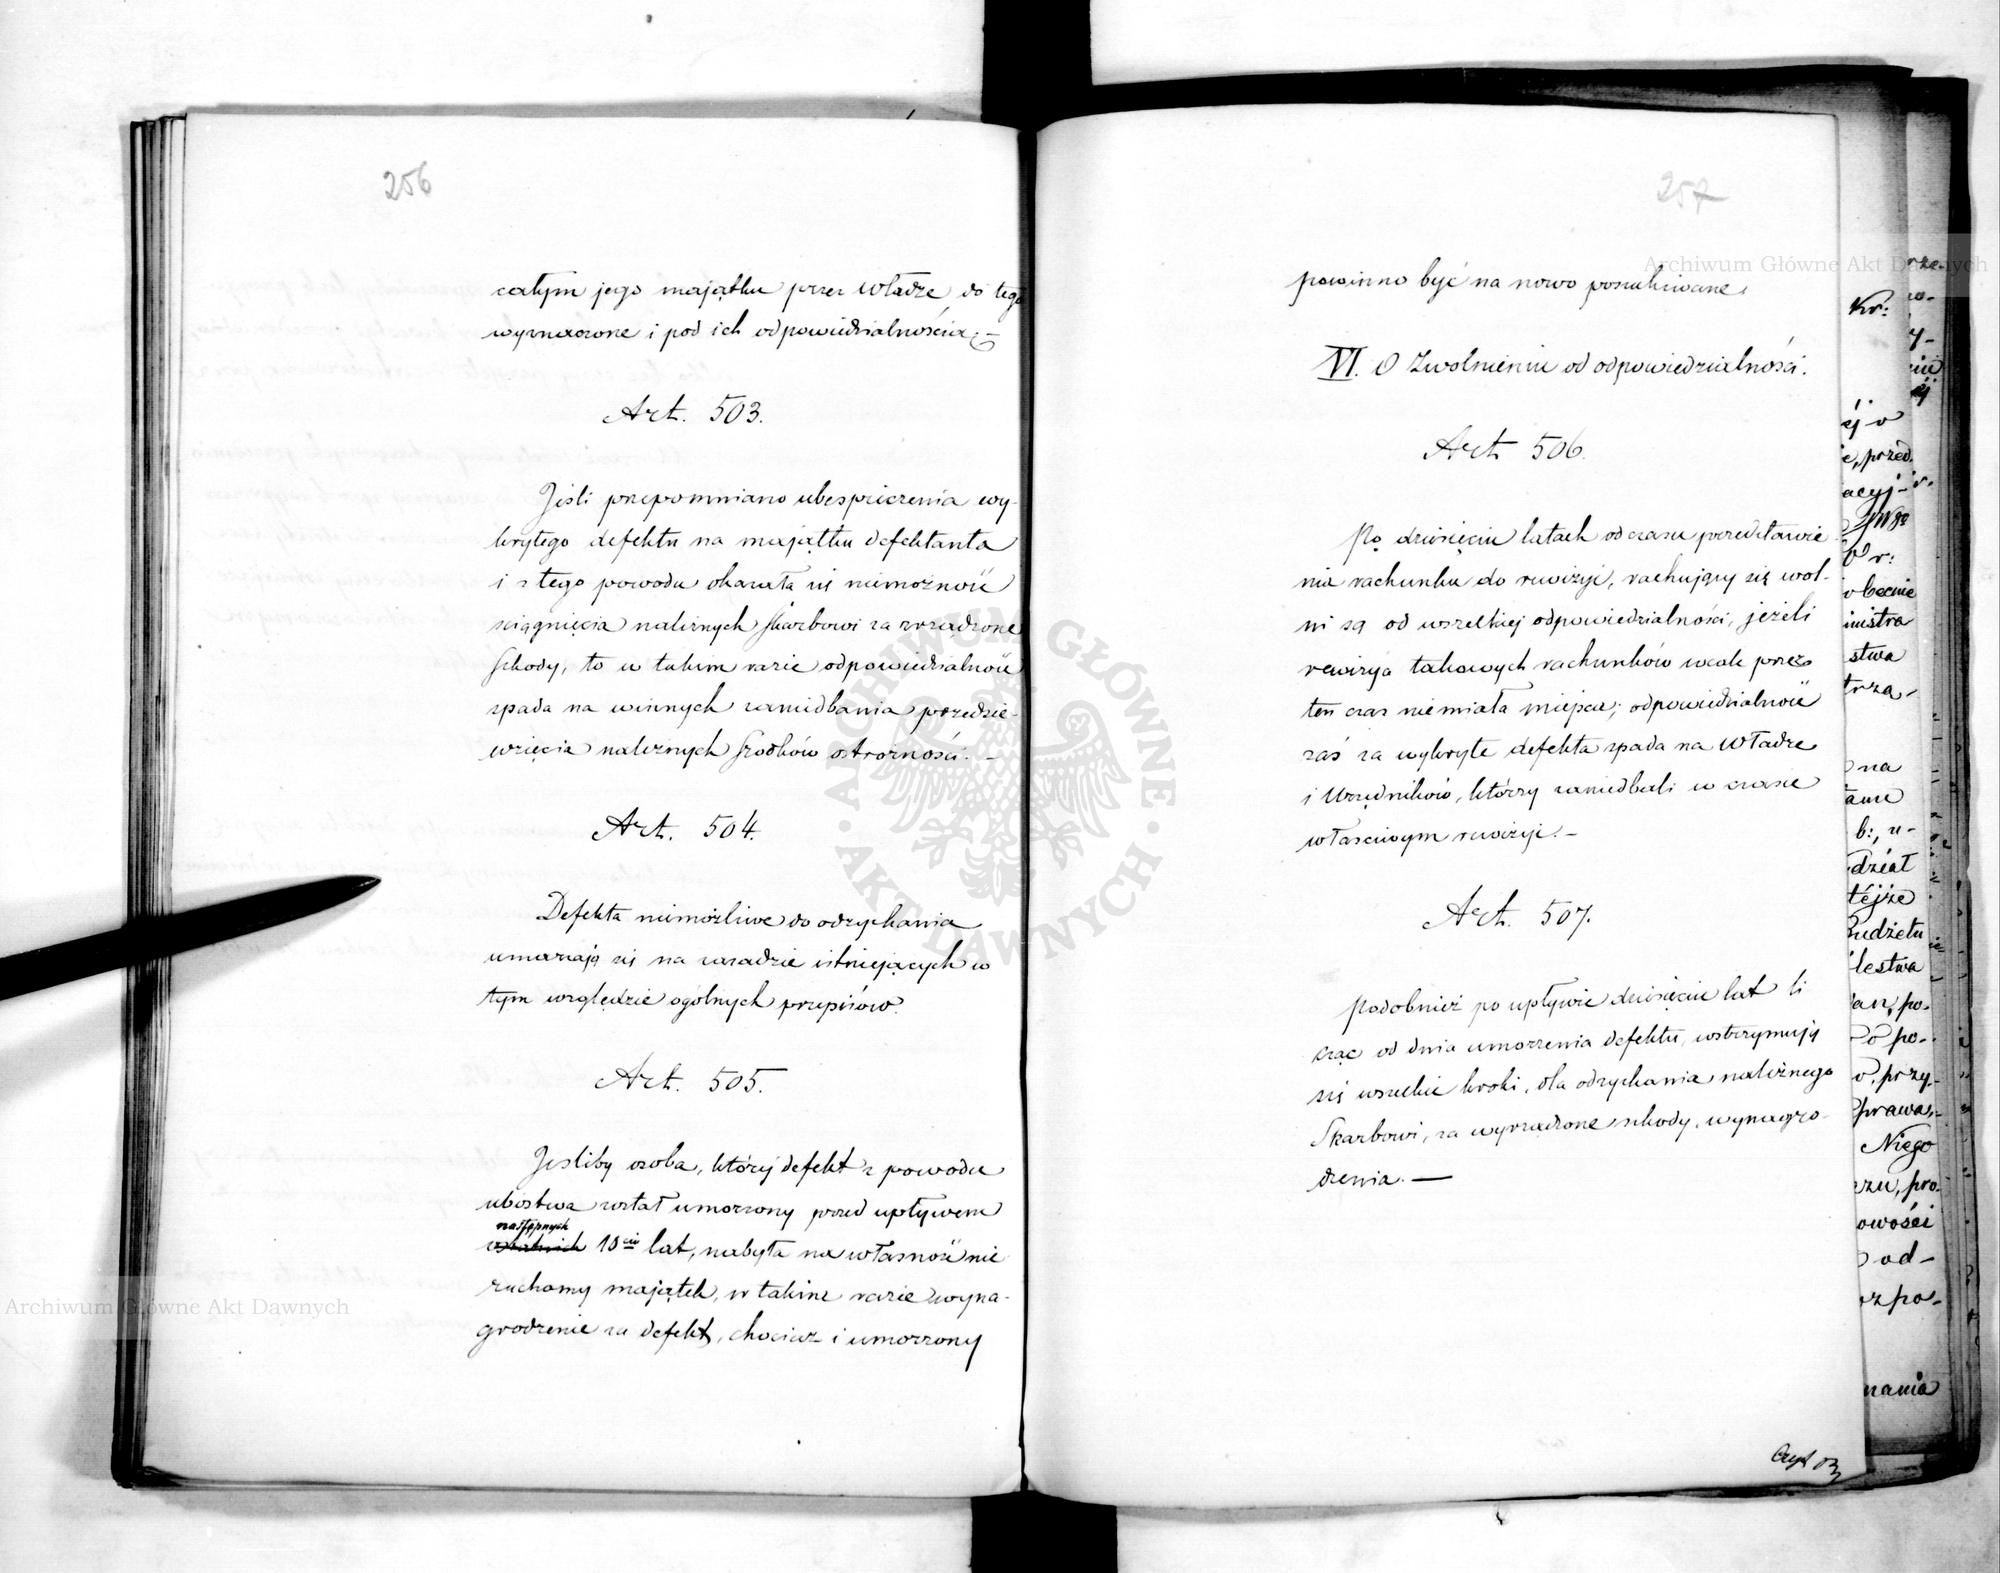 256
całym jego majątku przez Władze do tego
wyznaczone i pod ich odpowiedzialnością. –
Art. 503.
Jeśli przepomniano ubespieczenia wy-
krytego defektu na majątku defektanta
i z tego powodu okazała się niemożność
ściągnięcia należnych Skarbowi za zrządzone
szkody, to w takim razie odpowiedzialność
spada na winnych zaniedbania przedsię-
wzięcia należnych środków ostrożności. –
Art. 504.
Defekta niemożliwe do odzyskania
umarzają się na zasadzie istniejących w
tym względzie ogólnych przepisów.
Art. 505.
Jeśliby osoba, której defekt z powodu
ubóstwa został umorzony przed upływem
następnych
ostatnich 10ciu lat, nabyła na własność nie
ruchomy majątek, w takim razie wyna-
grodzenie za defekt, chociaż i umorzony
257
powinno być na nowo poszukiwane.
VI. O Zwolnieniu od odpowiedzialności.
Art. 506.
Po dziesięciu latach od czasu przedstawie-
nia rachunku do rewizyi, rachujący się wol-
ni są od wszelkiej odpowiedzialności, jeżeli
rewizyja takowych rachunków wcale przez
ten czas niemiała miejsca; odpowiedzialność
zaś za wykryte defekta spada na Władze
i Urzędników, którzy zaniedbali w czasie
właściwym rewizyi. –
Art. 507.
Podobnież po upływie dziesięciu lat li
cząc od dnia umorzenia defektu, wstrzymują
się wszelkie kroki, dla odzyskania należnego
Skarbowi, za wyrządzone szkody, wynagro-
dzenia. —
Kr:
ej o
e, przed
acyj-
obecnie
inistra
stwa
trza-
na
b:, u-
dział
téjże
Budżetu
lestwa
an, po-
o po-
o, przy-
prawa-
Niego
zu, pro-
owości
od-
ozpo-
nania
Archiwum Główne Akt Dawnych
Archiwum Główne Akt Dawnych
ARCHIWUM GŁÓWNE
AKT DAWNYCH